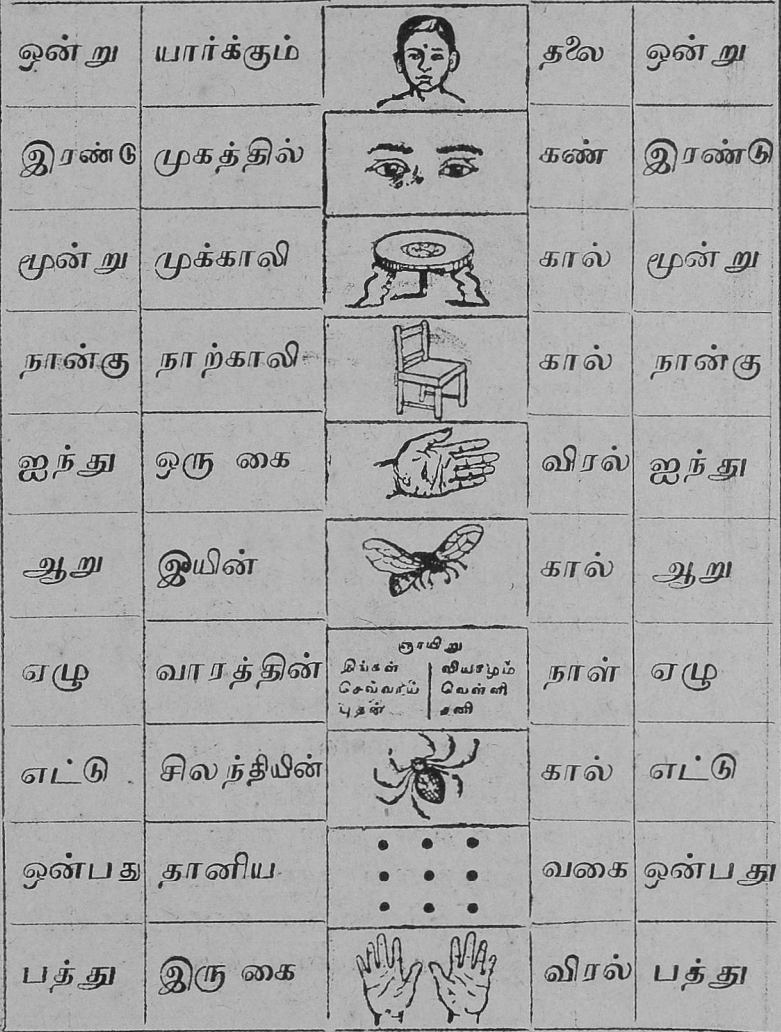 ஒன்று யார்க்கும் தலை ஒன்று
இரண்டு முகத்தில் கண் இரண்டு
மூன்று முக்காலி கால் மூன்று
நான்கு நாற்காலி கால் நான்கு
ஐந்து ஒரு கை விரல் ஐந்து
ஆறு ஈயின் கால் ஆறு
ஏழு வாரத்தின் நாள் ஏழு
ஞாயிறு
திங்கள் வியாழம்
செவ்வாய் வெள்ளி
புதன் சனி
எட்டு சிலந்தியின் கால் எட்டு
ஒன்பது தானிய வகை ஒன்பது
பத்து இரு கை விரல் பத்து